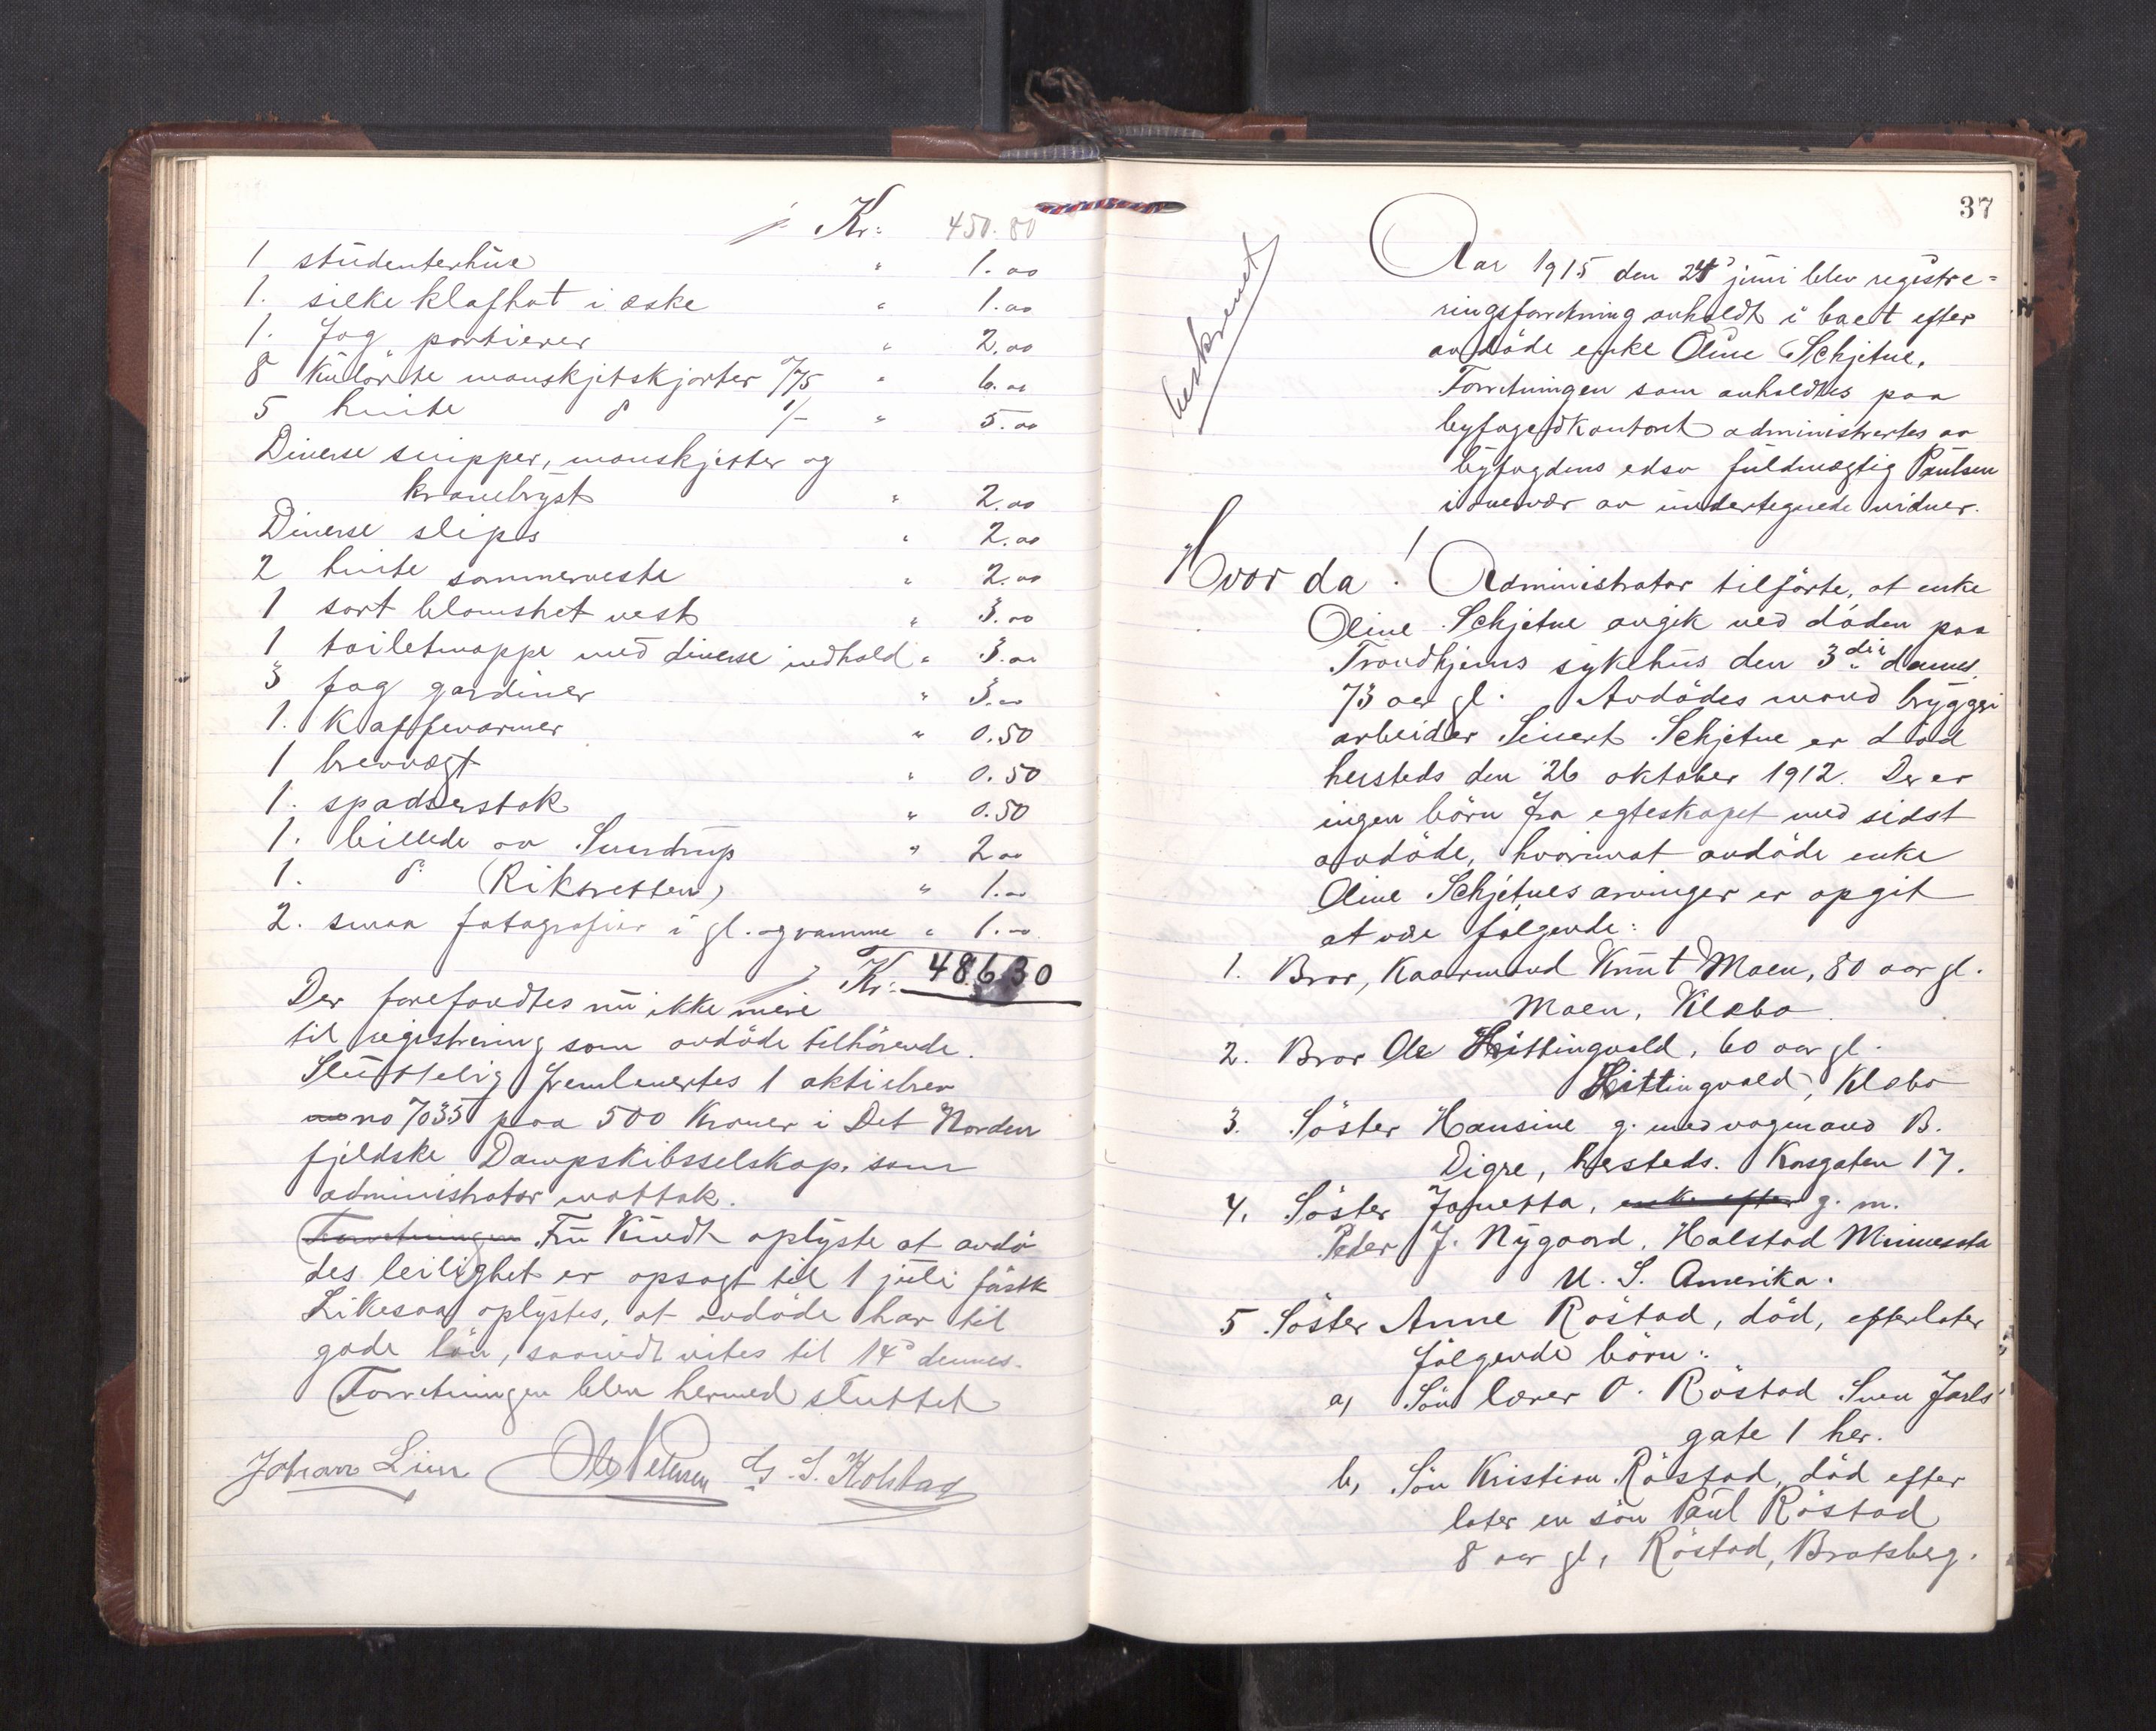 /. Kr: 450.80
1 studenterhue " 1.00
1. silke klaphat i æske " 1.00
1. fag portierer " 2.00
8 kulörte manskjetskjorter /75 " 6.00
5 hvite do 1/- " 5.00
Diverse snipper, manskjetter og
kravebryst " 2.00
Diverse slips " 2.00
2 hvite sommerveste " 2.00
1 sort blomstret vest " 3.00
1 toiletmappe med diverse indhold " 3.00
3 fag gardiner " 3.00
1. kaffevarmer " 0.50
1 brevvægt " 0.50
1. spaderstok " 0.50
1. billede av Sverdrup " 2.00
1. do (Riksretten) " 1.00
2. smaa fotografier i gl. og ramme " 1.00
/. Kr: 486.30
Der forefandtes nu ikke mere
til registrering som avdöde tilhörende.
Sluttelig fremlevertes 1 aktiebrev
no 7035 paa 500 Kroner i Det Norden
fjeldske Dampskibsselskap, som
administrator mottok.
Forretningen Fru Kindt oplyste at avdö
des leilighet er opsagt til 1 juli förstk
Likesaa oplystes, at avdöde har til
gode lön, saavidt vites til 14d dennes.
Forretningen blev hermed sluttet
Johan Lien Ole Petersen G. S. Kolstad
37
beskrevet
Aar 1915 den 24d juni blev registre=
ringsforretning avholdt i boet efter
avdöde enke Oline Schjetne.
Forretningen som avholdtes paa
byfogedkontoret administrertes av
byfogdens edsv fuldmægtig Paulsen
i overvær av undertegnede vidner.
Hvor da! Administrator tilförte, at enke
Oline Schjetne avgik ved döden paa
Trondhjems sykehus den 3die dennes
73 aar gl. Avdödes mand bryggeri
arbeider Sivert Schjetne er död
hersteds den 26 oktober 1912. Der er
ingen börn fra egteskapet med sidst
avdöde, hvorimot avdöde enke
Oline Schjetnes arvinger er opgit
at være fölgende:
1. Bror, Kaarmand Knut Moen, 80 aar gl.
Moen, Klæbo
2. Bror Ole Hittingvald, 60 aar gl.
Hittingvald, Klæbo
3. Söster Hansine g. med vognmand B.
Digre, hersteds. Korsgaten 17.
4. Söster Janetta, enke efter g. m.
Peder J. Nygaard, Halstad Minnesota
U. S. Amerika.
5 Söster Anne Röstad, död, efterlater
fölgende börn:
a, Sön lærer O. Röstad Sven Jarls
gate 1 her.
b, Sön Kristian Röstad, död efter
later en sön Paul Röstad
8 aar gl, Röstad, Bratsberg.